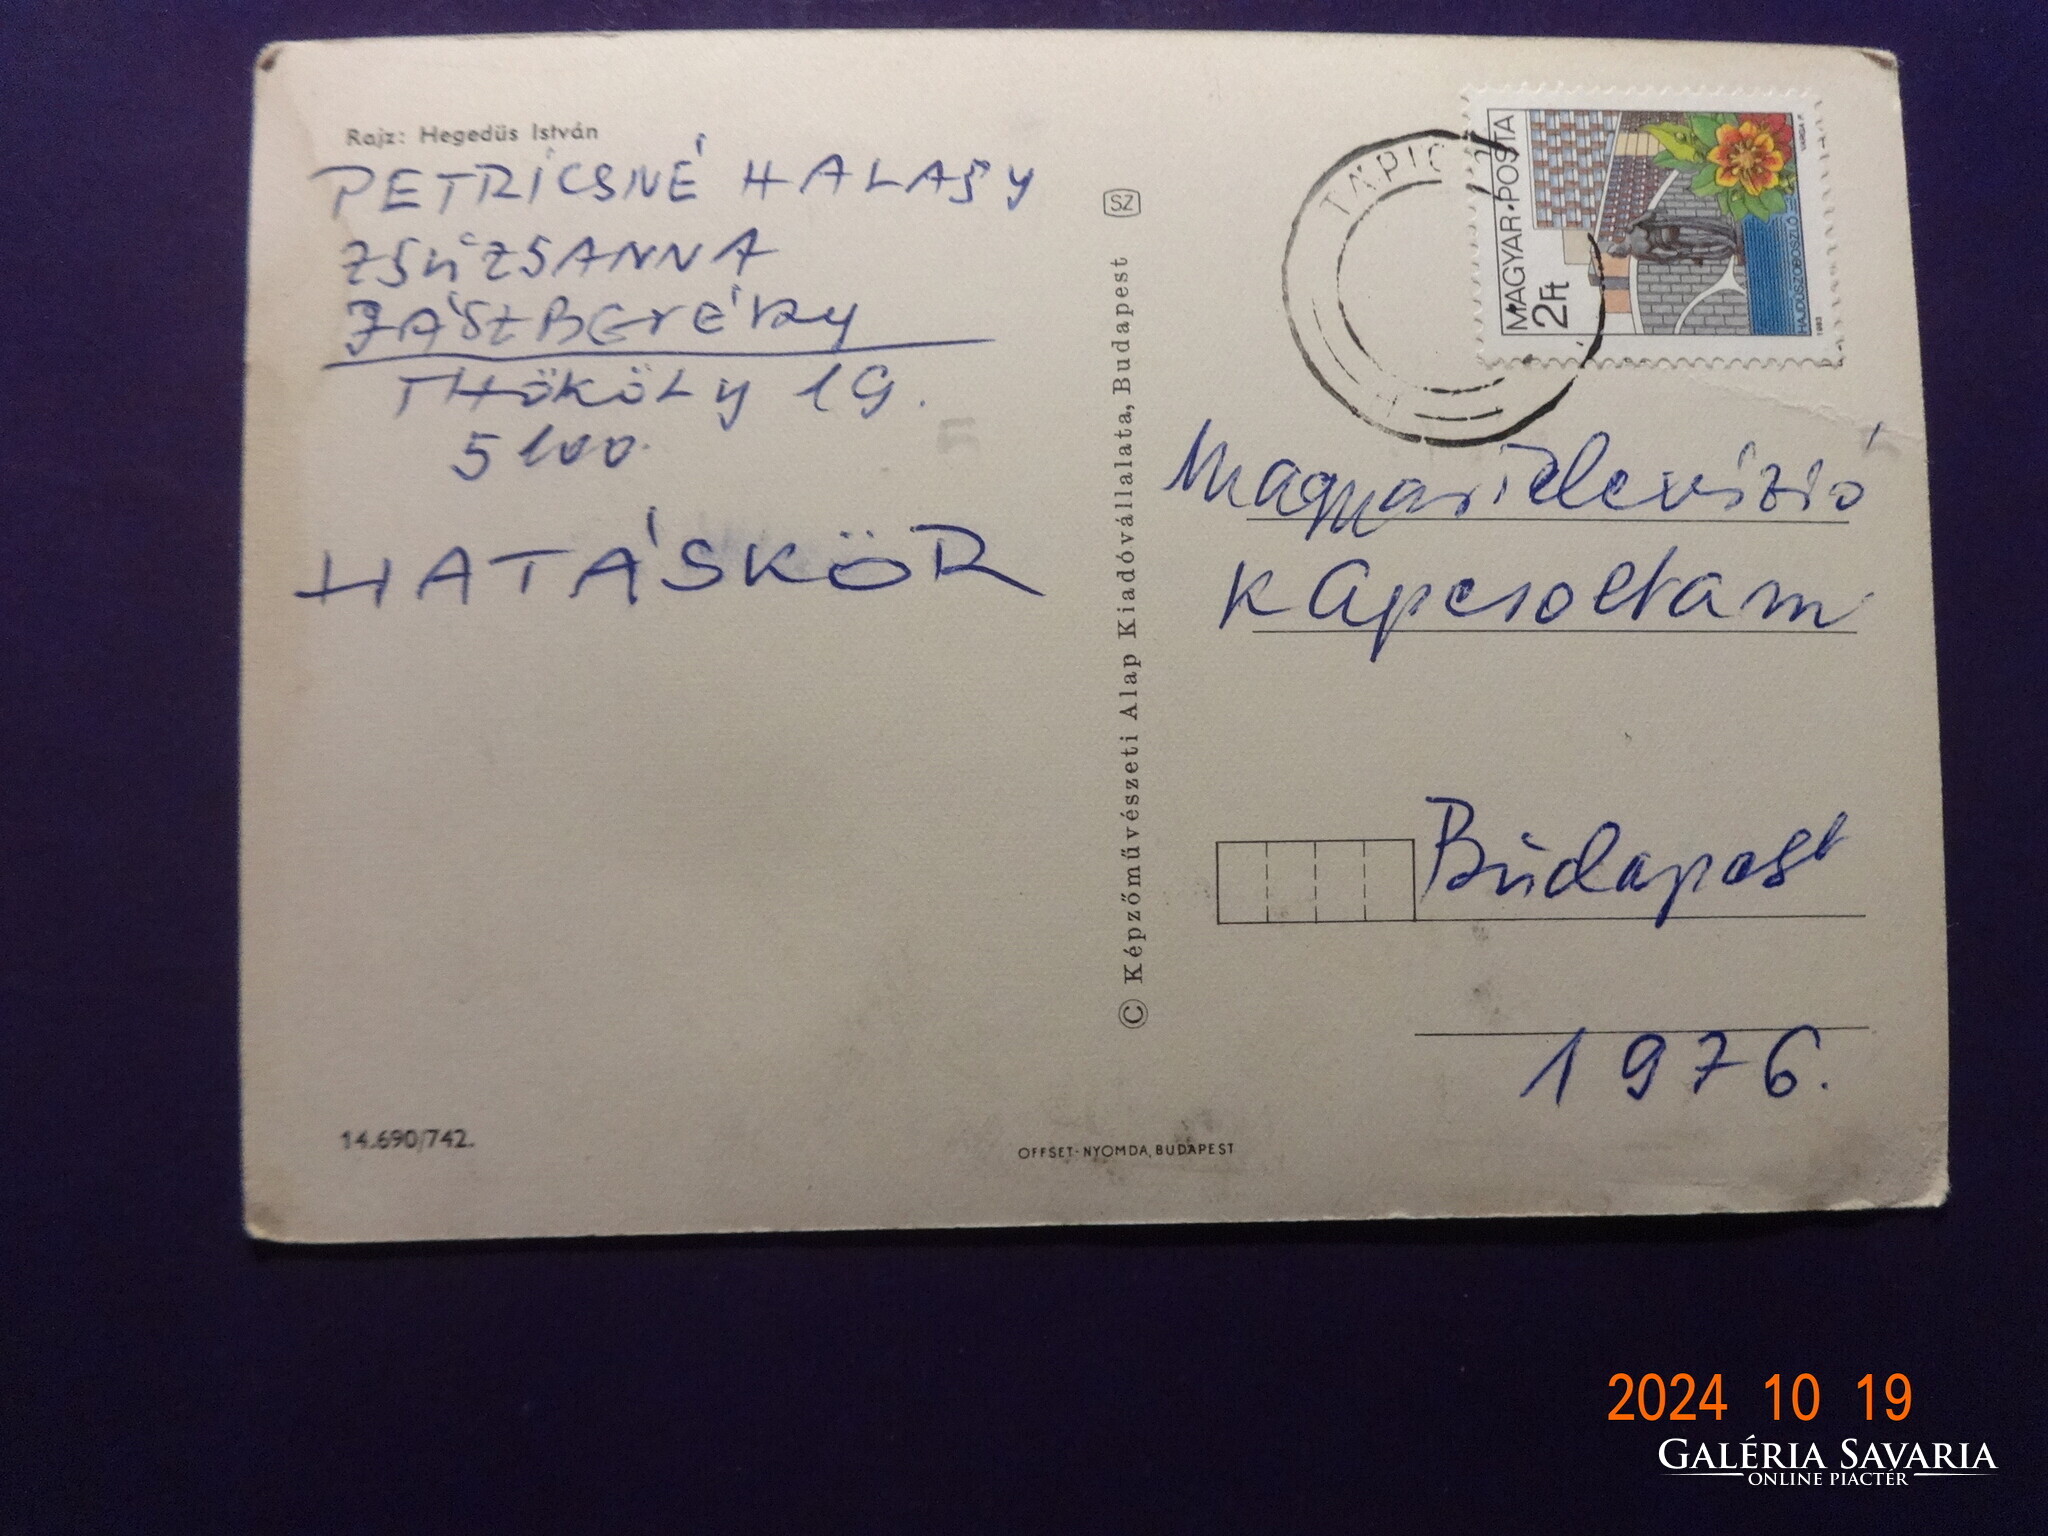 Rajz: Hegedüs István
PETRICSNÉ HALASY
ZSUZSANNA
JÁSZBERÉNY
THÖKÖLY 19.
5100.
HATÁSKÖR
14.690/742.
SZ
© Képzőművészeti Alap Kiadóvállalata, Budapest
OFFSET-NYOMDA, BUDAPEST
MAGYAR·POSTA
2Ft
HAJDÚSZOBOSZLÓ
VARGA P.
1983
TÁPIÓ
Magyar Televízió
Kapcsoltam
Budapest
1976.
2024 10 19
GALÉRIA SAVARIA
ONLINE PIACTÉR